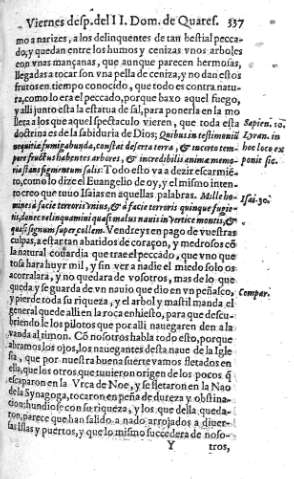 Viernes desp. del II. Dom. de Quares. 337
mo a narizes, a los delinquentes de tan bestial pecca-
do, y quedan entre los humos y cenizas vnos arboles
con vnas mançanas, que aunque parecen hermosas,
llegadas a tocar son vna pella de ceniza, y no dan estos
frutos en tiempo conocido, que todo es contra natu-
ra, como lo era el peccado, porque baxo aquel fuego,
y alli junto esta la estatua de sal, para ponerla en la mo
llera a los que aquel spectaculo vieren, que toda esta
Sapien. 10.
doctrina es de la sabiduria de Dios; Quibus in testimoniũ
Lyran. in
nequitiæ fumigabunda, constat deserta terra, & incerto tem-
hoc loco ex
pore fructus habentes arbores, & incredibilis animæ memo-
ponit sic.
ria stans figmentum salis: Todo esto va a dezir escarmiē-
to, como lo dize el Euangelio de oy, y el mismo inten-
to creo que tuuo Isaias en aquellas palabras. Mille ho-
Isai. 30.
mines à facie terroris vnius, & à facie terroris quinque fugie-
tis, donec relinquamini quasi malus nauis in vertice montis, &
quasi signum super collem. Vendreys en pago de vuestras
culpas, a estar tan abatidos de coraçon, y medrosos cõ
la natural couardia que trae el peccado, que vno que
tosa hara huyr mil, y sin ver a nadie el miedo solo os
acorralara, y no quedara de vosotros, mas de lo que
queda y se guarda de vn nauio que dio en vn peñasco,
Compar.
y pierde toda su riqueza, y el arbol y mastil manda el
general quede alli en la roca enhiesto, para que descu-
briendole los pilotos que por alli nauegaren den a la
vanda al timon. Cõ nosotros habla todo esto, porque
abramos los ojos, los nauegantes desta naue de la Igle
sia, que por nuestra buena suerte vamos fletados en
ella, que los otros que tuuieron origen de los pocos q̃
escaparon en la Vrca de Noe, y se fletaron en la Nao
de la Synagoga, tocaron en peña de dureza y obstina-
cion: hundiose con su riqueza, y los que della queda-
ron, parece que han salido a nado arrojados a diuer-
sas Islas y puertos, y que lo mismo succedera de noso-
Y tros,